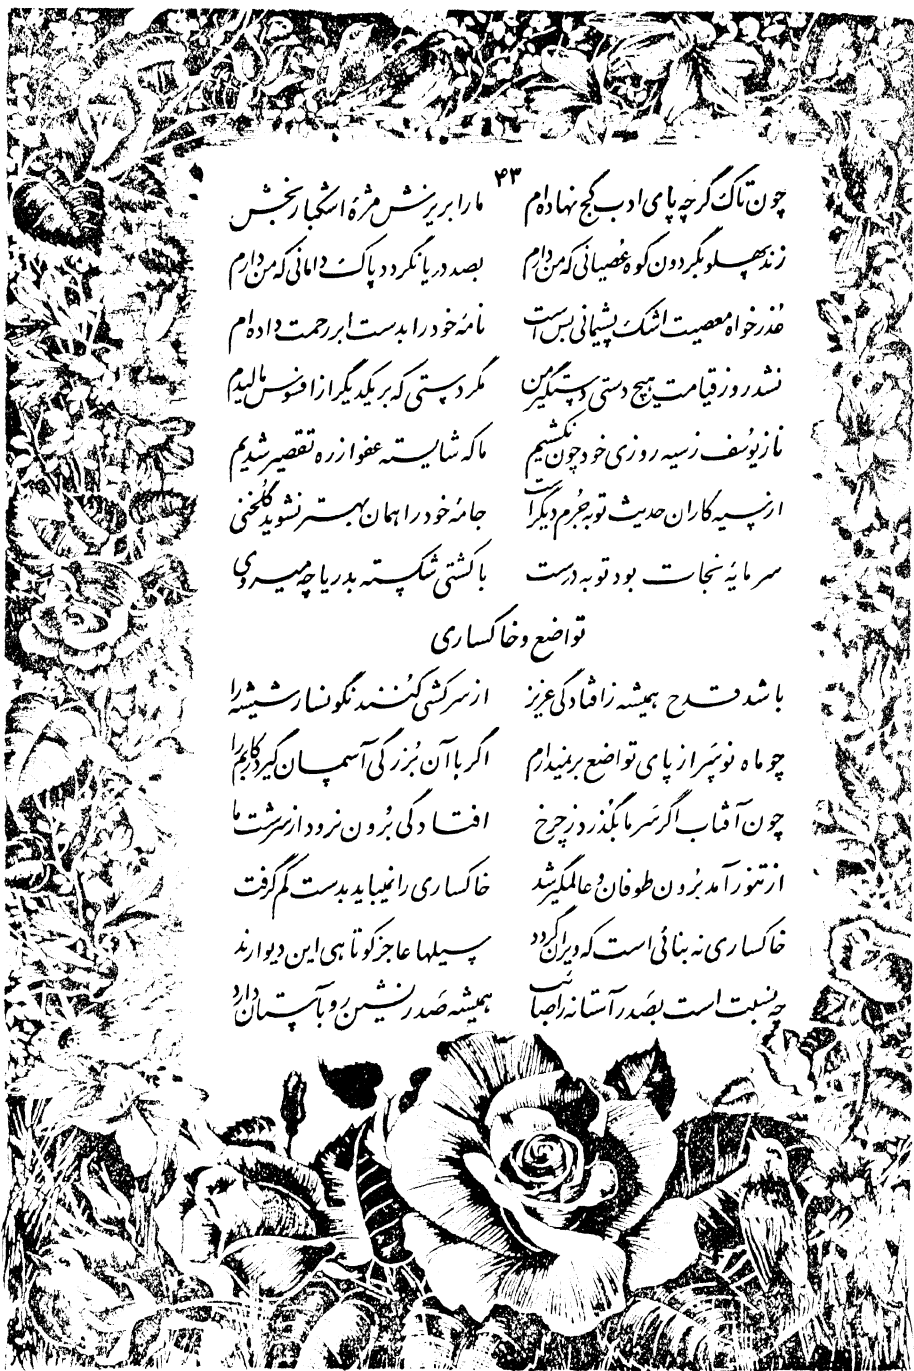 ۴۳
چون تاک گرچه پای ادب کج نهاده‌ام ما را بریزش مژهٔ اشکبار بخش
زند پهلو بگردون کوه عصیانی که من دارم بصد دریا نگردد پاک دامانی که من دارم
عذرخواه معصیت اشک پشیمانی بس است نامهٔ خود را بدست ابر رحمت داده‌ام
نشد روز قیامت هیچ دستی دستگیر من مگر دستی که بر یکدیگر از افسوس مالیدم
ناز یوسف ز سیه روزی خود چون نکشیم ما که شایسته عفو از ره تقصیر شدیم
از سیه کاران حدیث توبه جرم دیگر است جامهٔ خود را همان بهتر نشوید گلخنی
سرمایهٔ نجات بود توبه درست با کشتی شکسته بدریا چه میروی
تواضع و خاکساری
باشد قدح همیشه ز افتادگی عزیز از سرکشی کنند نگونسار شیشه را
چو ماه نو سر از پای تواضع برنمیدارم اگر با آن بزرگی آسمان گیرد رکابم را
چون آفتاب اگر سر ما بگذرد ز چرخ افتادگی برون نرود از سرشت ما
از تنور آمد برون طوفان و عالمگیر شد خاکساری را نمیباید بدست کم گرفت
خاکساری نه بنائی است که ویران گردد سیلها عاجز کوتاهی این دیوارند
چه نسبت است بصدر آستانه را صائب همیشه صدرنشین رو بآستان دارد